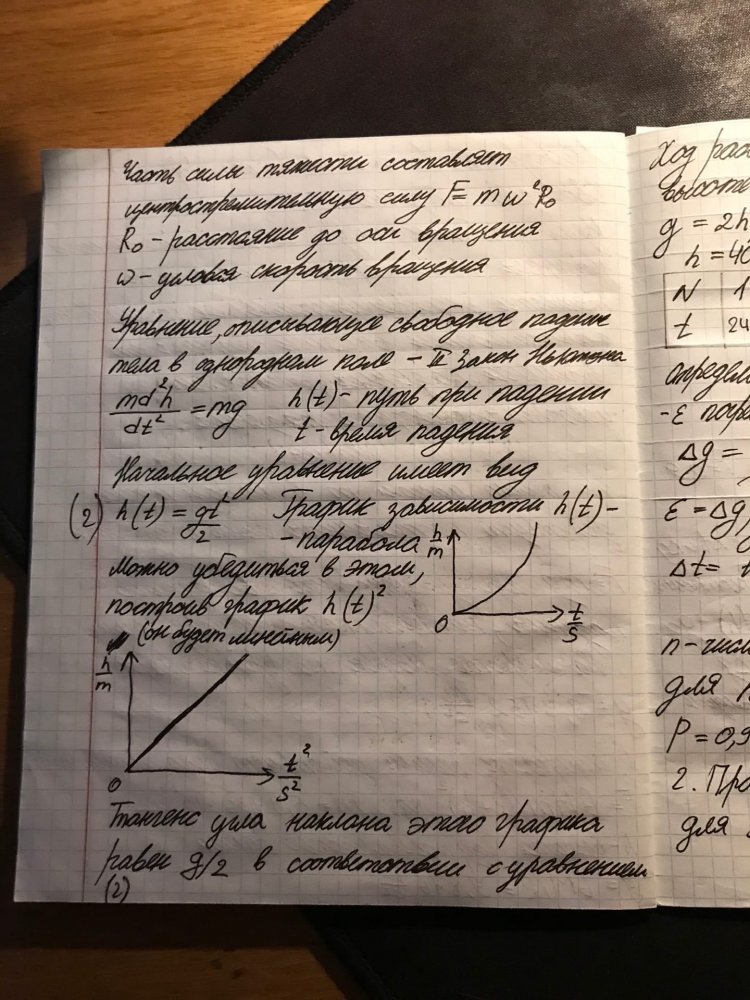 Часть силы тяжести составляет
центростремительную силу F = mω²R₀
R₀ - расстояние до оси вращения
ω - угловая скорость вращения
Уравнение, описывающее свободное падение
тела в однородном поле - II закон Ньютона
md²h/dt² = mg h(t) - путь при падении
t - время падения
Начальное уравнение имеет вид
(2) h(t) = gt²/2 График зависимости h(t) -
- парабола
Можно убедиться в этом,
построив график h(t)²
(он будет линейным)
h/m
0
t/s
h/m
0
t²/s²
Тангенс угла наклона этого графика
равен g/2 в соответствии с уравнением
(2)
Ход раб
высот
g = 2h
h = 40
N 1
t 24
определ
- ε погр
Δg =
ε = Δg
Δt =
n - числ
для
P = 0,9
2. Про
для